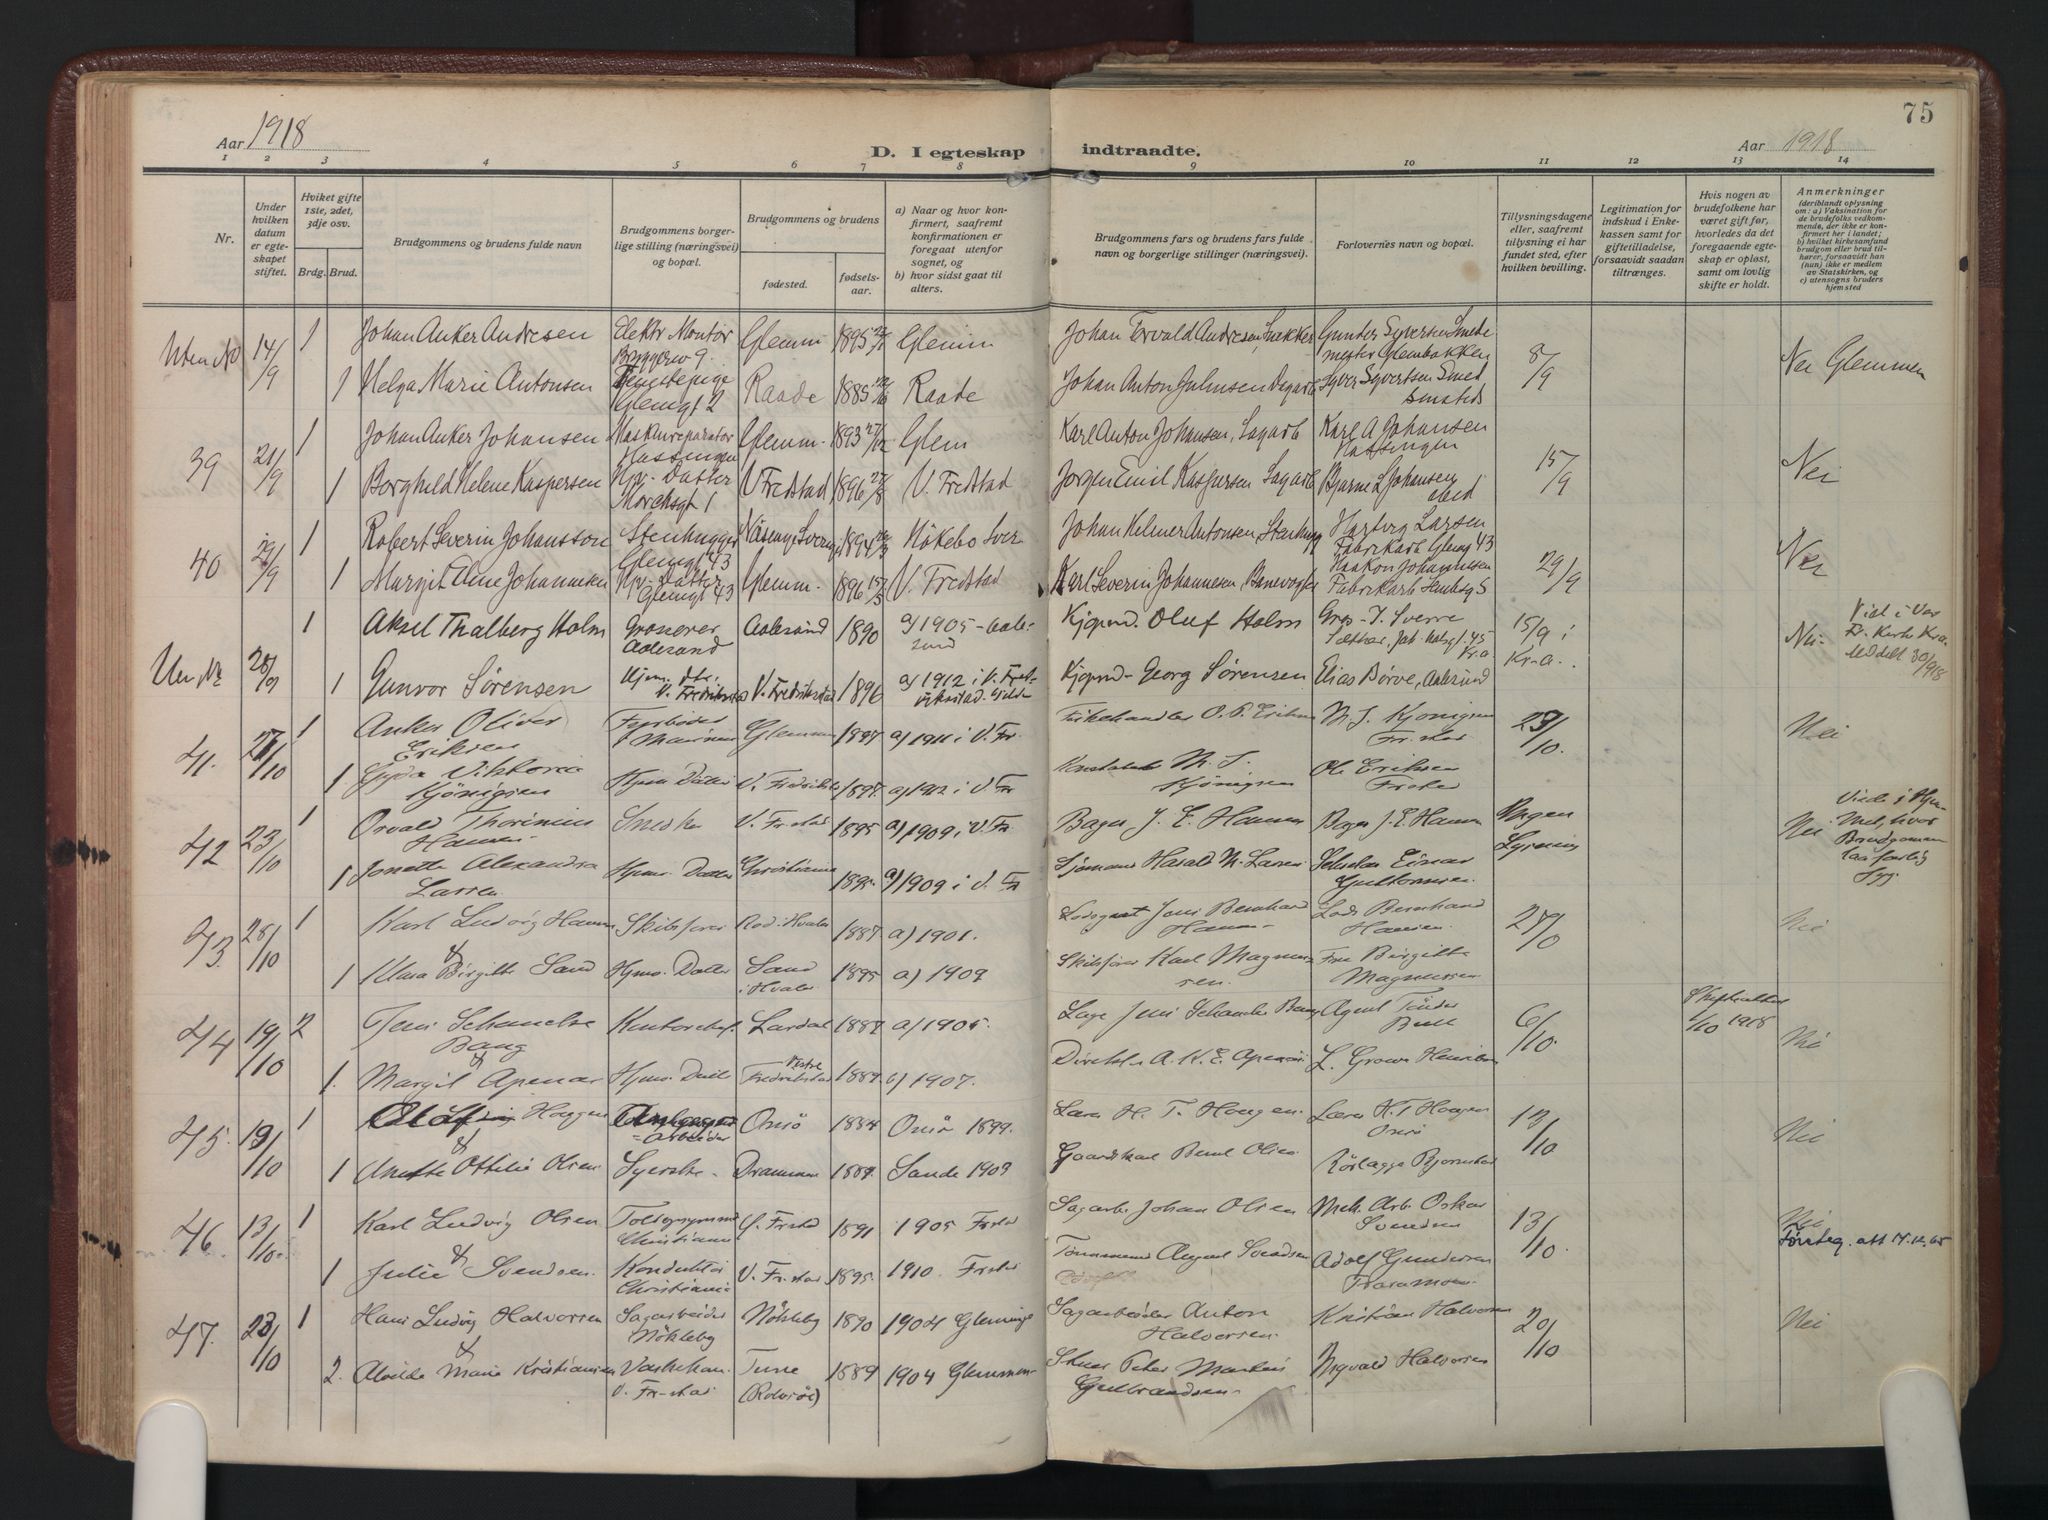 75
Aar 1918
D. I egteskap indtraadte.
Aar 1918
1 2 3 4 5 6 7 8 9 10 11 12 13 14
Nr.
Under hvilken datum er egteskapet stiftet.
Hviket gifte 1ste, 2det, 3dje osv.
Brdg. Brud.
Brudgommens og brudens fulde navn
Brudgommens borgerlige stilling (næringsvei) og bopæl.
Brudgommens og brudens
fødested.
fødselsaar.
a) Naar og hvor konfirmert, saafremt konfirmationen er foregaat utenfor sognet, og
b) hvor sidst gaat til alters.
Brudgommens fars og brudens fars fulde navn og borgerlige stillinger (næringsvei).
Forlovernes navn og bopæl.
Tillysningsdagene eller, saafremt tillysning ei har fundet sted, efter hvilken bevilling.
Legitimation for indskud i Enkekassen samt for giftetilladelse, forsaavidt saadan tiltrænges.
Hvis nogen av brudefolkene har været gift før, hvorledes da det foregaaende egteskap er opløst, samt om lovlig skifte er holdt.
Anmerkninger
(deriblandt oplysning om: a) Vaksination for de brudefolks vedkommende, der ikke er konfirmert her i landet; b) hvilket kirkesamfund brudgom eller brud tilhører, forsaavidt han (hun) ikke er medlem av Statskirken, og c) utensogns bruders hjemsted
Uten No 14/9 1 Johan Anker Andresen Elektr Montør Glemm 1895 Glemm Johan Torvald Andresen, Snekker Gunder Syversen Smedemester Glembakken 8/9 Nei Glemmen
1 Helga Marie Antonsen Glemgt 2 Raade 1885 Raade Johan Anton Julinsen Dagarb Syver Syvertsen Smed
39 21/9 1 Johan Anker Johansen Maskinreparatør Hassingen Glemm. 1893 27/12 Glem Karl Anton Johansen, Sagarb Karl A Johansen Hassingen 15/9 Nei
1 Borghild Helene Kaspersen Hjv. Datter V Fredstad 1896 27/8 V. Fredstad Jørgen Emil Kaspersen Sagarb Bjarne L Johansen
40 29/9 1 Robert Severin Johansson Stenhugger Glemgt 43 Näsinge Sverige 1894 Hökebo Sver Johan Helmer Antonsen, Stenhug Hartvig Larsen Fabrikarb Glemg 43 29/9 Nei
1 Margit Eline Johannesen Hjv- Datter Glemgt 43 Glemm. 1896 15/3 V. Fredstad Karl Severin Johannesen, Banevogter Haakon Johannesen Fabrikarb
1 Aksel Thalberg Holm Grosserer Aalesund Aalesund 1890 a) 1905 - Aalesund Kjøpmd. Oluf Holm Sverre 15/9 i Kr.a. Nei Viet i Vor Fr. Kirke Kr.a Meddelt 30/9 18
28/9 1 Gunvor Sørensen Hjm. dtr. V. Fredriksstad V. Fredrikstad 1896 a) 1912 i V. Fredrikstad Kjøpmd- Georg Sørensen Elias Børve, Aalesund
41. 10 1 Anker Oliver Eriksen Glemmen 1897 a) 1911 i V. Fr. Fiskehandler O. P. Eriksen M. J. Kjønigsen Fr.stad 10. Nei
1 Gyda Viktoria Kjønigsen Hjem. Datter V. Fredrikstad 1897. a) 1912 i V Fr M. J. Kjønigsen Ole Eriksen Fr.stad
42 23/10 1 Osvald Thorinius Hansen Snedker V. Fr.stad 1895 a) 1909 i V. Fr Bager J. E. Hansen Bager J. E. Hansen Ingen Lysning Nei Viede i Hjemmet, hvor Brudgommen laa farlig syg.
1 Jonette Alexandra Larsen Hjmv. Datter Christiania 1895. a) 1909 i V. Fr Sjømand Harald M. Larsen Einar Guttormsen
43. 28/10 1 Karl Ludvig Hansen & Skibsfører Rød i Hvaler 1887 a) 1901. Jens Bernhard Hansen Lods Bernhard Hansen Nei
1 Klara Birgitte Sand Hjmv. Datter Sand i Hvaler 1895 a) 1909 Skibsfører Karl Magnussen Fru Birgitte Magnussen
44 19/10 2 Jens Schanche Bang & Kontorchef. Lardal 1887 a) 1905. Læge Jens Schanche Bang Agent Bull 6/10. Skifteattest /10 1918 Nei
1. Margit Apenæs Hjmv. Datter Vestre Fredrikstad 1887 a) 1907. Direktør A. K. E. Apenæs
45. 19/10 1 Olaf Haugen & arbeider Onsø 1884 Onsø 1899. Lærer H. T. Haugen. Lærer H. T Haugen Onsø 10 Nei
1 Anette Ottilie Olsen Syerske- Drammen 1887. Sande 1909 Gaardskarl Bernt Olsen
46. 13/10. 1 Karl Ludvig Olsen & Christiania V. Fr.stad 1891 1905 Fr.stad Sagarb. Johan Olsen Mek. Arb. Oskar Svendsen 13/10. Nei Føreteg. att 17.12.65
1 Julie Svendsen. Konduktør Christiania V. Fr.stad 1895. 1910. Fr.stad August Svendsen Adolf Gundersen
47. 23/10 1 Hans Ludvig Halvorsen & Sagarbeider Nökleby Nökleby 1890 1904 Glemminge Sagarbeider Anton Halvorsen. Kristian Halvorsen 20/10 Nei
2. Alvilde Marie Kristiansen V. Fr-stad Tune (Rolvsøe) 1889 1904 Glemmen- Peter Martin Gulbrandsen- Ingvald Halvorsen